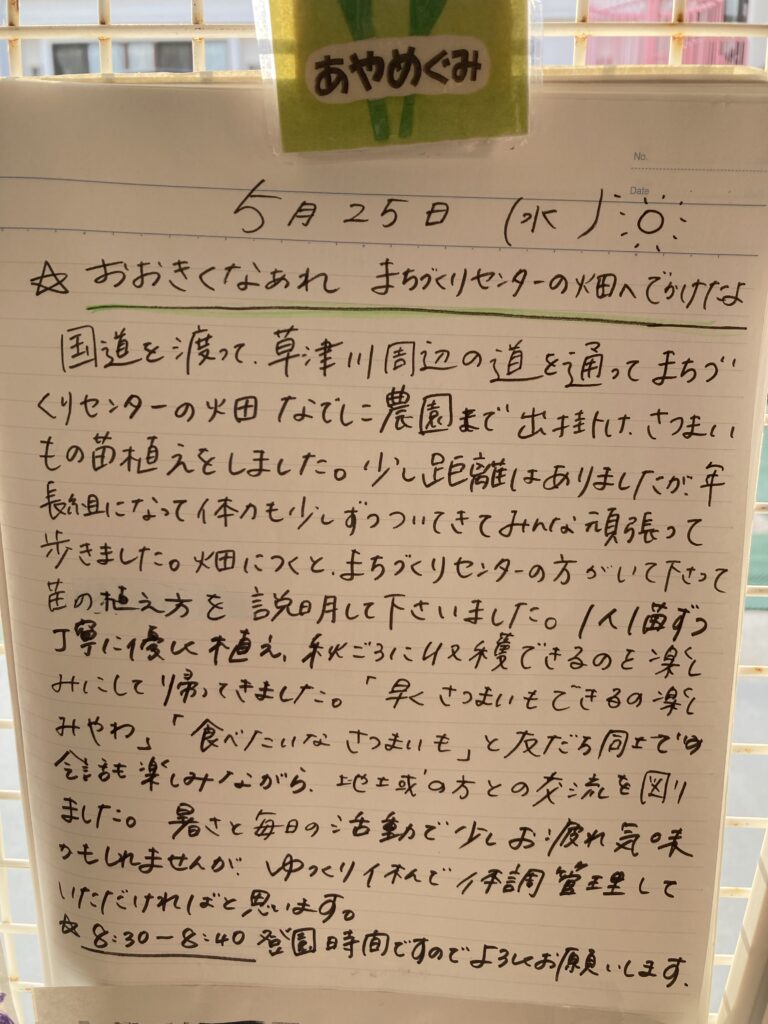 あやめぐみ
No.
Date
5月25日 (水)
☆ おおきくなあれ まちづくりセンターの畑へでかけたよ
国道を渡って、草津川周辺の道を通ってまちづ
くりセンターの畑 なでしこ農園まで出掛け、さつまい
もの苗植えをしました。少し距離はありましたが、年
長組になって体力も少しずつついてきてみんな頑張って
歩きました。畑につくと、まちづくりセンターの方がいて下さって
苗の植え方を説明して下さいました。1人1苗ずつ
丁寧に優しく植え、秋ごろに収穫できるのを楽し
みにして帰ってきました。「早くさつまいもできるの楽し
みやわ」「食べたいなさつまいも」と友だち同士での
会話も楽しみながら、地域の方との交流を図り
ました。暑さと毎日の活動で少しお疲れ気味
かもしれませんが、ゆっくり休んで体調管理して
いただければと思います。
☆ 8:30-8:40 登園時間ですのでよろしくお願いします。